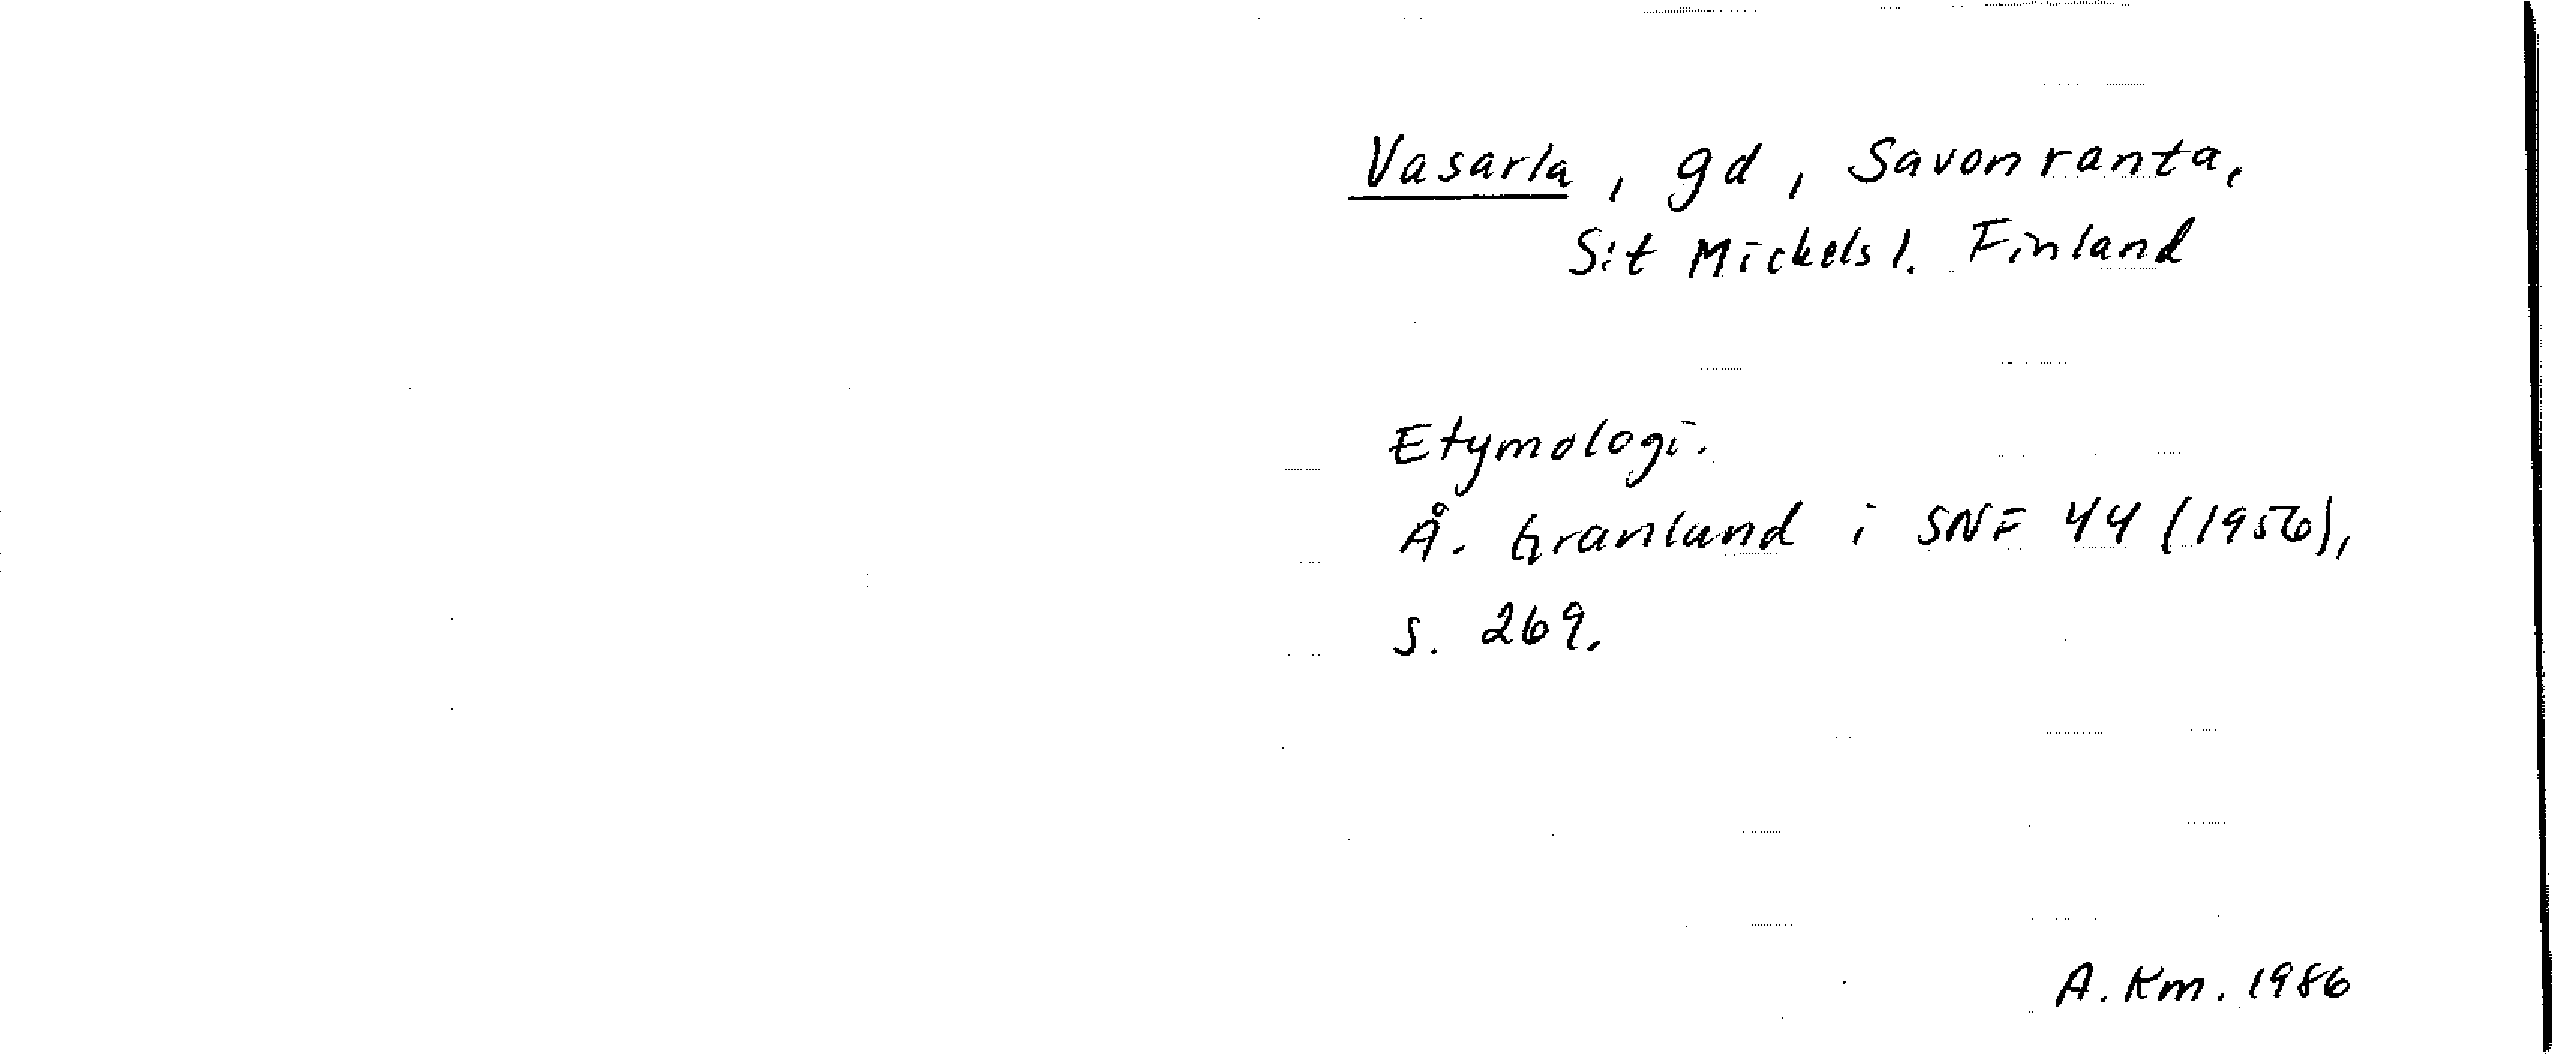 Vasarla, gd, Savonranta,
S:t Mickels l. Finland
Etymologi.
Å. Granlund i SNF 44 (1956),
s. 269.
A. Km. 1986